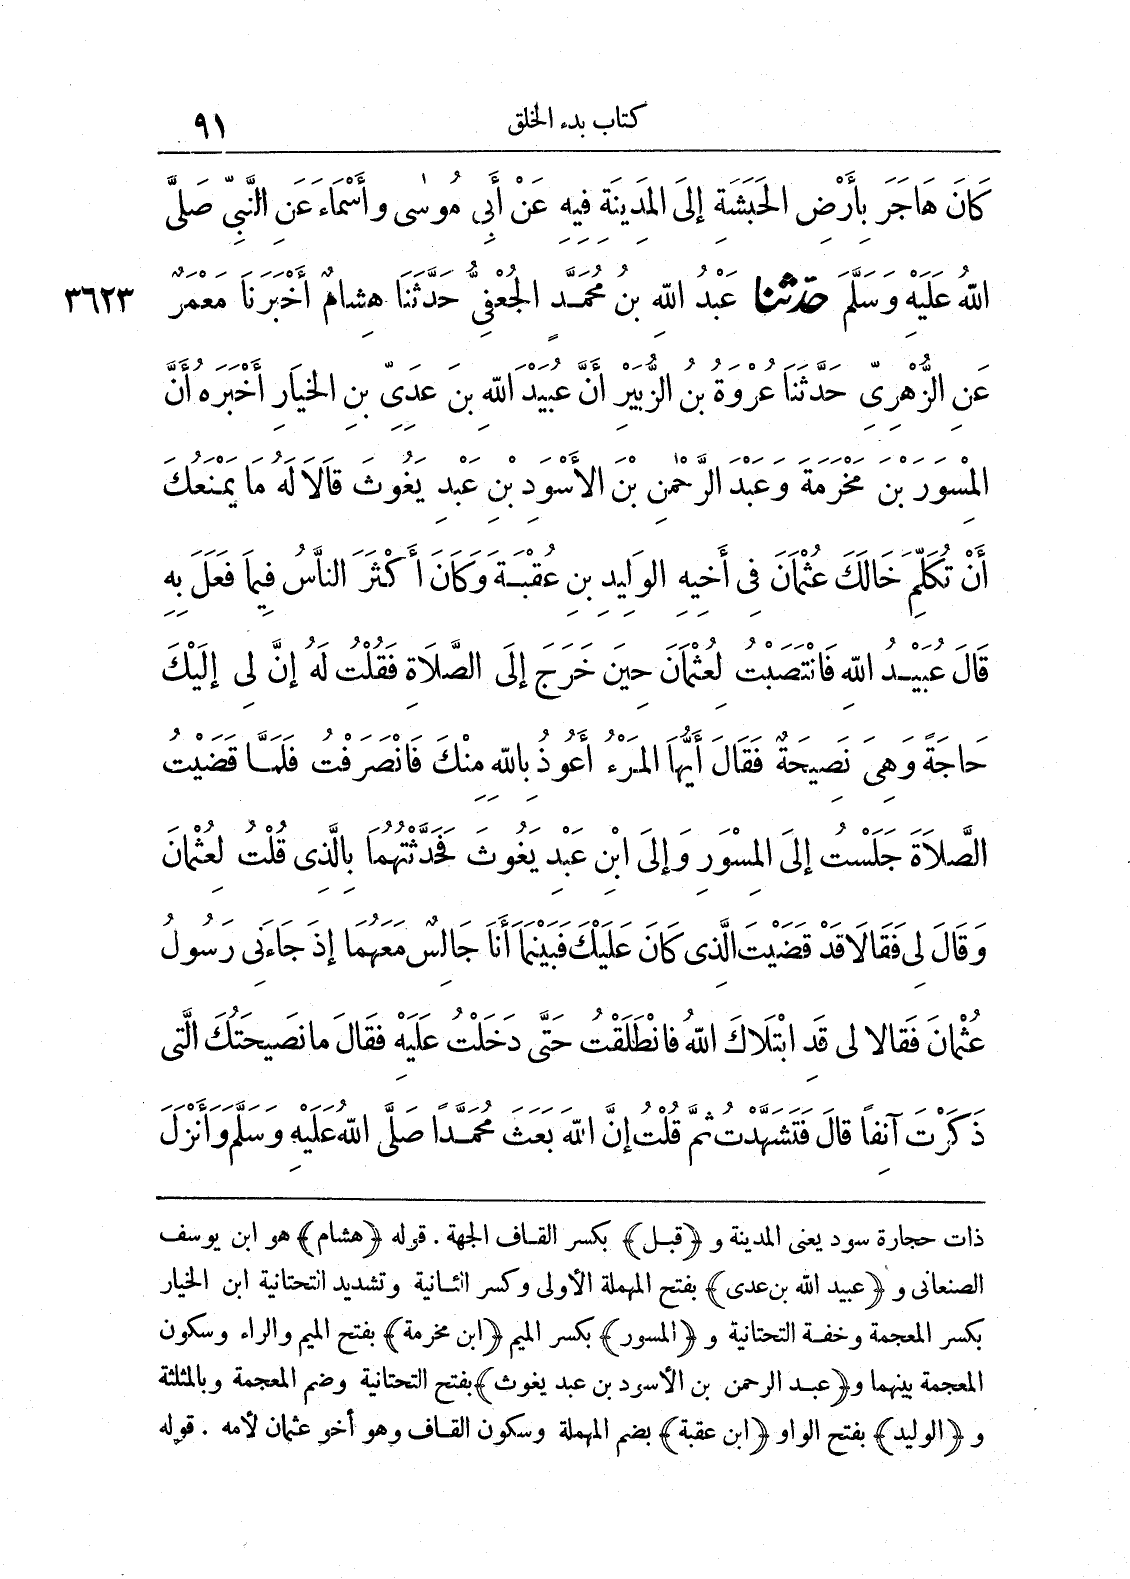 كتاب بدء الخلق ٩١
كَانَ هَاجَرَ بِأَرْضِ الْحَبَشَةِ إِلَى الْمَدِينَةِ فِيهِ عَنْ أَبِي مُوسٰى وأَسْمَاءَ عَنِ النَّبِيِّ صَلَّى
اللهُ عَلَيْهِ وَسَلَّمَ حدثنا عَبْدُ اللهِ بنُ مُحَمَّدٍ الْجُعْفِيُّ حَدَّثَنَا هِشامٌ أَخْبَرَنَا مَعْمَرٌ ٣٦٢٣
عَنِ الزُّهْرِيِّ حَدَّثَنَا عُرْوَةُ بنُ الزُّبَيْرِ أَنَّ عُبَيْدَ اللهِ بنَ عَدِيِّ بنِ الخِيَارِ أَخْبَرَهُ أَنَّ
الْمِسْوَرَ بْنَ مَخْرَمَةَ وَعَبْدَ الرَّحْمٰنِ بْنَ الأَسْوَدِ بْنِ عَبْدِ يَغُوثَ قَالَا لَهُ مَا يَمْنَعُكَ
أَنْ تُكَلِّمَ خَالَكَ عُثْمَانَ فِى أَخِيهِ الوَلِيدِ بنِ عُقْبَةَ وَكَانَ أَكْثَرَ النَّاسُ فِيمَا فَعَلَ بِهِ
قَالَ عُبَيْدُ اللهِ فَانْتَصَبْتُ لِعُثْمَانَ حِينَ خَرَجَ إِلَى الصَّلَاةِ فَقُلْتُ لَهُ إِنَّ لِى إِلَيْكَ
حَاجَةً وَهِىَ نَصِيحَةٌ فَقَالَ أَيُّهَا الْمَرْءُ أَعُوذُ بِاللهِ مِنْكَ فَانْصَرَفْتُ فَلَمَّا قَضَيْتُ
الصَّلَاةَ جَلَسْتُ إِلَى الْمِسْوَرِ وَإِلَى ابْنِ عَبْدِ يَغُوثَ فَحَدَّثْتُهُمَا بِالَّذِى قُلْتُ لِعُثْمَانَ
وَقَالَ لِى فَقَالَا قَدْ قَضَيْتَ الَّذِى كَانَ عَلَيْكَ فَبَيْنَمَا أَنَا جَالِسٌ مَعَهُمَا إِذْ جَاءَنِى رَسُولُ
عُثْمَانَ فَقَالا لِى قَدِ ابْتَلَاكَ اللهُ فَانْطَلَقْتُ حَتَّى دَخَلْتُ عَلَيْهِ فَقَالَ مَا نَصِيحَتُكَ الَّتِى
ذَكَرْتَ آنِفاً قَالَ فَتَشَهَّدْتُ ثُمَّ قُلْتُ إِنَّ اللهَ بَعَثَ مُحَمَّدًا صَلَّى اللهُ عَلَيْهِ وَسَلَّمَ وَأَنْزَلَ
ذات حجارة سود يعنى المدينة و ﴿قبل﴾ بكسر القاف الجهة . قوله ﴿هشام﴾ هو ابن يوسف
الصنعانى و ﴿عبيد الله بن عدى﴾ بفتح المهملة الأولى وكسر الثانية وتشديد التحتانية ابن الخيار
بكسر المعجمة وخفة التحتانية و ﴿المسور﴾ بكسر الميم ﴿ابن مخرمة﴾ بفتح الميم والراء وسكون
المعجمة بينهما و﴿عبد الرحمن بن الأسود بن عبد يغوث﴾ بفتح التحتانية وضم المعجمة وبالمثلثة
و ﴿الوليد﴾ بفتح الواو ﴿ابن عقبة﴾ بضم المهملة وسكون القاف وهو أخو عثمان لأمه . قوله